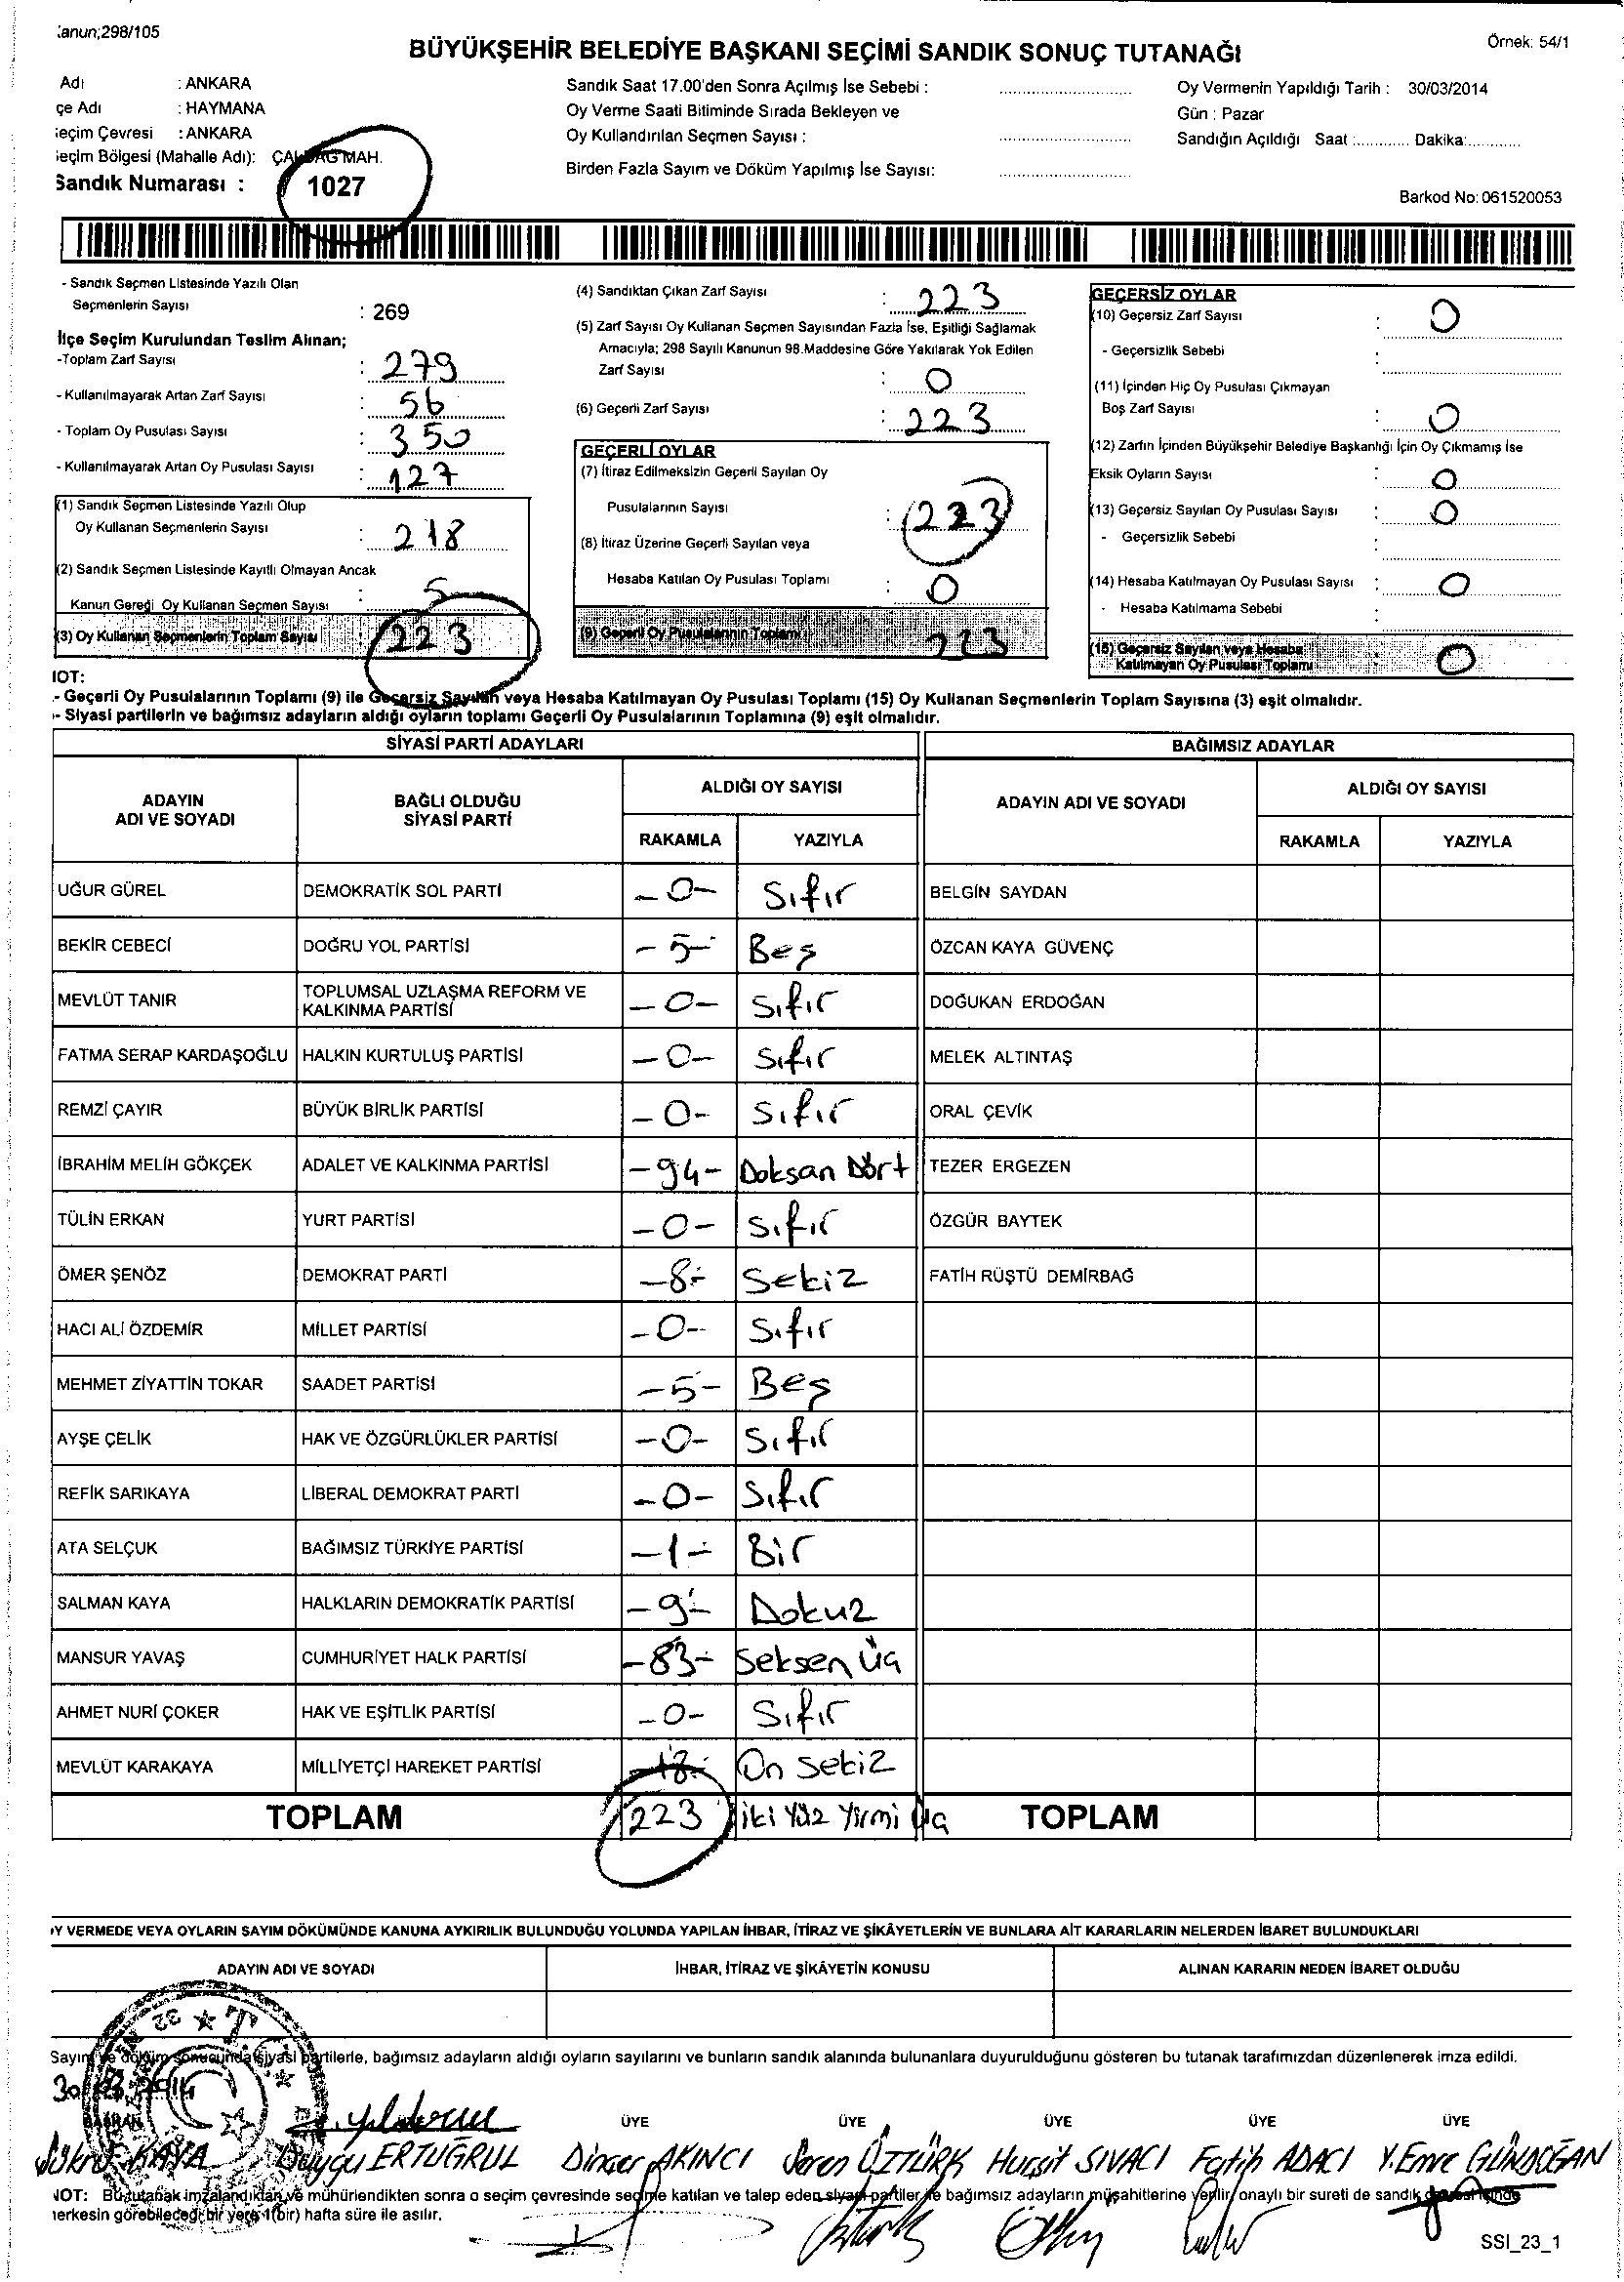 anun;298/105
Örnek: 54/1
BÜYÜKŞEHİR BELEDİYE BAŞKANI SEÇİMİ SANDIK SONUÇ TUTANAĞI
Adı : ANKARA
çe Adı : HAYMANA
eçim Çevresi : ANKARA
eçim Bölgesi (Mahalle Adı): MAH.
Sandık Numarası : 1027
Sandık Saat 17.00'den Sonra Açılmış İse Sebebi : ............
Oy Verme Saati Bitiminde Sırada Bekleyen ve
Oy Kullandırılan Seçmen Sayısı : ............
Birden Fazla Sayım ve Döküm Yapılmış İse Sayısı: ............
Oy Vermenin Yapıldığı Tarih : 30/03/2014
Gün : Pazar
Sandığın Açıldığı Saat :............ Dakika:............
Barkod No: 061520053
- Sandık Seçmen Listesinde Yazılı Olan
Seçmenlerin Sayısı : 269
İlçe Seçim Kurulundan Teslim Alınan;
-Toplam Zarf Sayısı : 279
- Kullanılmayarak Artan Zarf Sayısı : 56
- Toplam Oy Pusulası Sayısı : 350
- Kullanılmayarak Artan Oy Pusulası Sayısı : 127
(1) Sandık Seçmen Listesinde Yazılı Olup
Oy Kullanan Seçmenlerin Sayısı : 218
(2) Sandık Seçmen Listesinde Kayıtlı Olmayan Ancak
Kanun Gereği Oy Kullanan Seçmen Sayısı : 5
(3) Oy Kullanan Seçmenlerin Toplam Sayısı 223
(4) Sandıktan Çıkan Zarf Sayısı : 223
(5) Zarf Sayısı Oy Kullanan Seçmen Sayısından Fazla İse, Eşitliği Sağlamak
Amacıyla; 298 Sayılı Kanunun 98.Maddesine Göre Yakılarak Yok Edilen
Zarf Sayısı : 0
(6) Geçerli Zarf Sayısı : 223
GEÇERLİ OYLAR
(7) İtiraz Edilmeksizin Geçerli Sayılan Oy
Pusulalarının Sayısı : 223
(8) İtiraz Üzerine Geçerli Sayılan veya
Hesaba Katılan Oy Pusulası Toplamı : 0
(9) Geçerli Oy Pusulalarının Toplamı 223
GEÇERSİZ OYLAR
(10) Geçersiz Zarf Sayısı : 0
- Geçersizlik Sebebi :
(11) İçinden Hiç Oy Pusulası Çıkmayan
Boş Zarf Sayısı : 0
(12) Zarfın İçinden Büyükşehir Belediye Başkanlığı İçin Oy Çıkmamış İse
Eksik Oyların Sayısı : 0
(13) Geçersiz Sayılan Oy Pusulası Sayısı : 0
- Geçersizlik Sebebi :
(14) Hesaba Katılmayan Oy Pusulası Sayısı : 0
- Hesaba Katılmama Sebebi :
(15) Geçersiz Sayılan veya Hesaba
Katılmayan Oy Pusulası Toplamı 0
IOT:
.- Geçerli Oy Pusulalarının Toplamı (9) ile Geçersiz Sayılan veya Hesaba Katılmayan Oy Pusulası Toplamı (15) Oy Kullanan Seçmenlerin Toplam Sayısına (3) eşit olmalıdır.
- Siyasi partilerin ve bağımsız adayların aldığı oyların toplamı Geçerli Oy Pusulalarının Toplamına (9) eşit olmalıdır.
SİYASİ PARTİ ADAYLARI BAĞIMSIZ ADAYLAR
ADAYIN ADI VE SOYADI BAĞLI OLDUĞU SİYASİ PARTİ ALDIĞI OY SAYISI ADAYIN ADI VE SOYADI ALDIĞI OY SAYISI
RAKAMLA YAZIYLA RAKAMLA YAZIYLA
UĞUR GÜREL DEMOKRATİK SOL PARTİ -0- Sıfır BELGİN SAYDAN
BEKİR CEBECİ DOĞRU YOL PARTİSİ -5- Beş ÖZCAN KAYA GÜVENÇ
MEVLÜT TANIR TOPLUMSAL UZLAŞMA REFORM VE KALKINMA PARTİSİ -0- Sıfır DOĞUKAN ERDOĞAN
FATMA SERAP KARDAŞOĞLU HALKIN KURTULUŞ PARTİSİ -0- Sıfır MELEK ALTINTAŞ
REMZİ ÇAYIR BÜYÜK BİRLİK PARTİSİ -0- Sıfır ORAL ÇEVİK
İBRAHİM MELİH GÖKÇEK ADALET VE KALKINMA PARTİSİ -94- Doksan Dört TEZER ERGEZEN
TÜLİN ERKAN YURT PARTİSİ -0- Sıfır ÖZGÜR BAYTEK
ÖMER ŞENÖZ DEMOKRAT PARTİ -8- Sekiz FATİH RÜŞTÜ DEMİRBAĞ
HACI ALİ ÖZDEMİR MİLLET PARTİSİ -0- Sıfır
MEHMET ZİYATTİN TOKAR SAADET PARTİSİ -5- Beş
AYŞE ÇELİK HAK VE ÖZGÜRLÜKLER PARTİSİ -0- Sıfır
REFİK SARIKAYA LİBERAL DEMOKRAT PARTİ -0- Sıfır
ATA SELÇUK BAĞIMSIZ TÜRKİYE PARTİSİ -1- Bir
SALMAN KAYA HALKLARIN DEMOKRATİK PARTİSİ -9- Dokuz
MANSUR YAVAŞ CUMHURİYET HALK PARTİSİ -83- Seksen üç
AHMET NURİ ÇOKER HAK VE EŞİTLİK PARTİSİ -0- Sıfır
MEVLÜT KARAKAYA MİLLİYETÇİ HAREKET PARTİSİ -18- On Sekiz
TOPLAM 223 iki Yüz Yirmi üç TOPLAM
Y VERMEDE VEYA OYLARIN SAYIM DÖKÜMÜNDE KANUNA AYKIRILIK BULUNDUĞU YOLUNDA YAPILAN İHBAR, İTİRAZ VE ŞİKÂYETLERİN VE BUNLARA AİT KARARLARIN NELERDEN İBARET BULUNDUKLARI
ADAYIN ADI VE SOYADI İHBAR, İTİRAZ VE ŞİKÂYETİN KONUSU ALINAN KARARIN NEDEN İBARET OLDUĞU
Sayım ve döküm sonucunda siyasi partilerle, bağımsız adayların aldığı oyların sayılarını ve bunların sandık alanında bulunanlara duyurulduğunu gösteren bu tutanak tarafımızdan düzenlenerek imza edildi.
30.03.2014
BAŞKAN ÜYE ÜYE ÜYE ÜYE ÜYE
KAYA Duygu ERTUĞRUL Dinçer AKINCI Seren ÖZTÜRK Hurşit SIVACI Fatih ADACI Y.Emre GÜNDOĞAN
NOT: Bu tutanak imzalandıktan ve mühürlendikten sonra o seçim çevresinde seçime katılan ve talep eden siyasi partiler ile bağımsız adayların müşahitlerine verilir, onaylı bir sureti de sandık
herkesin görebileceği bir yere 1(bir) hafta süre ile asılır.
SSI_23_1